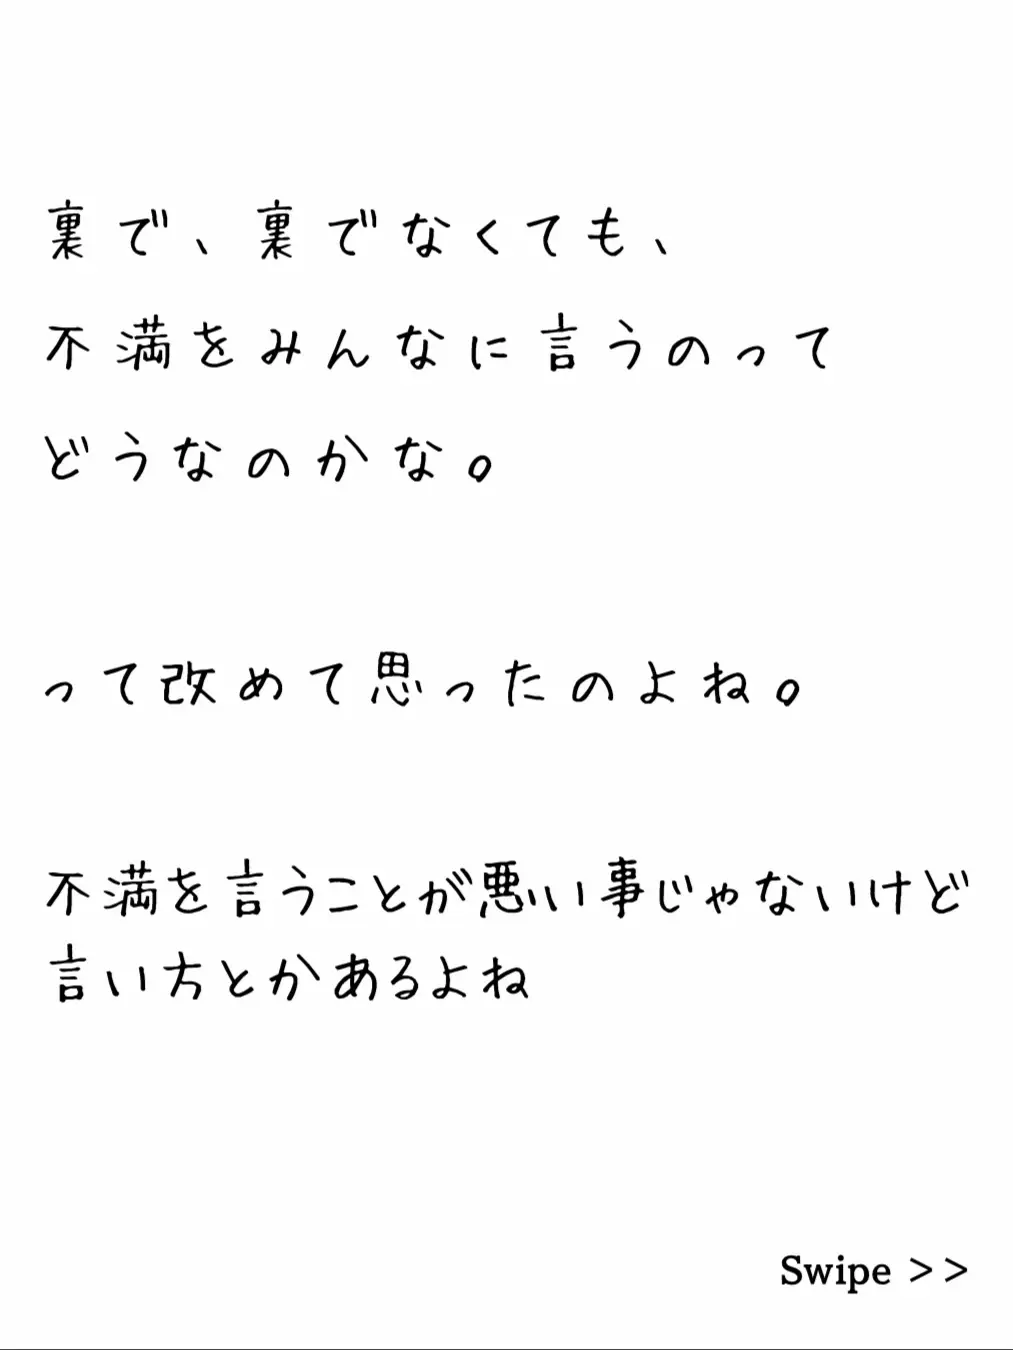 裏で、裏でなくても、
不満をみんなに言うのって
どうなのかな。
って改めて思ったのよね。
不満を言うことが悪い事じゃないけど
言い方とかあるよね
Swipe >>